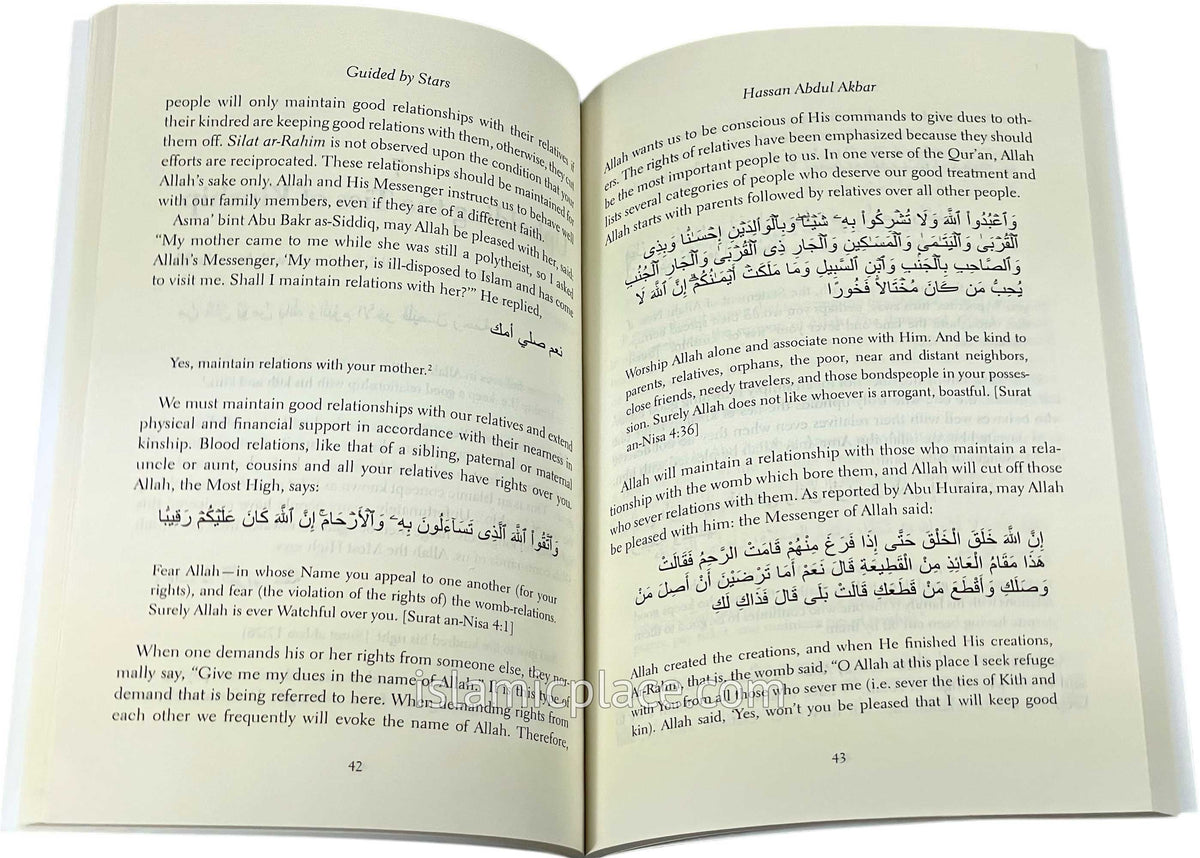 Guided by Stars
people will only maintain good relationships with their relatives if
their kindred are keeping good relations with them, otherwise, they cut
them off. Silat ar-Rahim is not observed upon the condition that your
efforts are reciprocated. These relationships should be maintained for
Allah's sake only. Allah and His Messenger instructs us to behave well
with our family members, even if they are of a different faith.
Asma' bint Abu Bakr as-Siddiq, may Allah be pleased with her, said,
"My mother came to me while she was still a polytheist, so I asked
Allah's Messenger, 'My mother, is ill-disposed to Islam and has come
to visit me. Shall I maintain relations with her?'" He replied,
نعم صلي أمك
Yes, maintain relations with your mother.²
We must maintain good relationships with our relatives and extend
physical and financial support in accordance with their nearness in
kinship. Blood relations, like that of a sibling, paternal or maternal
uncle or aunt, cousins and all your relatives have rights over you.
Allah, the Most High, says:
وَٱتَّقُوا۟ ٱللَّهَ ٱلَّذِى تَسَآءَلُونَ بِهِۦ وَٱلْأَرْحَامَ ۚ إِنَّ ٱللَّهَ كَانَ عَلَيْكُمْ رَقِيبًا
Fear Allah—in whose Name you appeal to one another (for your
rights), and fear (the violation of the rights of) the womb-relations.
Surely Allah is ever Watchful over you. [Surat an-Nisa 4:1]
When one demands his or her rights from someone else, they nor-
mally say, "Give me my dues in the name of Allah." It is this very
demand that is being referred to here. When demanding rights from
each other we frequently will evoke the name of Allah. Therefore,
42
Hassan Abdul Akbar
Allah wants us to be conscious of His commands to give dues to oth-
ers. The rights of relatives have been emphasized because they should
be the most important people to us. In one verse of the Qur'an, Allah
lists several categories of people who deserve our good treatment and
Allah starts with parents followed by relatives over all other people.
وَٱعْبُدُوا۟ ٱللَّهَ وَلَا تُشْرِكُوا۟ بِهِۦ شَيْـًٔا ۖ وَبِٱلْوَٰلِدَيْنِ إِحْسَـٰنًا وَبِذِى
ٱلْقُرْبَىٰ وَٱلْيَتَـٰمَىٰ وَٱلْمَسَـٰكِينِ وَٱلْجَارِ ذِى ٱلْقُرْبَىٰ وَٱلْجَارِ ٱلْجُنُبِ
وَٱلصَّاحِبِ بِٱلْجَنۢبِ وَٱبْنِ ٱلسَّبِيلِ وَمَا مَلَكَتْ أَيْمَـٰنُكُمْ ۗ إِنَّ ٱللَّهَ لَا
يُحِبُّ مَن كَانَ مُخْتَالًا فَخُورًا
Worship Allah alone and associate none with Him. And be kind to
parents, relatives, orphans, the poor, near and distant neighbors,
close friends, needy travelers, and those bondspeople in your posses-
sion. Surely Allah does not like whoever is arrogant, boastful. [Surat
an-Nisa 4:36]
Allah will maintain a relationship with those who maintain a rela-
tionship with the womb which bore them, and Allah will cut off those
who sever relations with them. As reported by Abu Huraira, may Allah
be pleased with him: the Messenger of Allah said:
إِنَّ اللَّهَ خَلَقَ الْخَلْقَ حَتَّى إِذَا فَرَغَ مِنْهُمْ قَامَتْ الرَّحِمُ فَقَالَتْ
هَذَا مَقَامُ الْعَائِذِ مِنْ الْقَطِيعَةِ قَالَ نَعَمْ أَمَا تَرْضَيْنَ أَنْ أَصِلَ مَنْ
وَصَلَكِ وَأَقْطَعَ مَنْ قَطَعَكِ قَالَتْ بَلَى قَالَ فَذَاكِ لَكِ
Allah created the creations, and when He finished His creations,
ar-Rahm, that is, the womb said, "O Allah at this place I seek refuge
with You from all those who sever me (i.e. sever the ties of Kith and
kin). Allah said, 'Yes, won't you be pleased that I will keep good
43
islamicplace.com